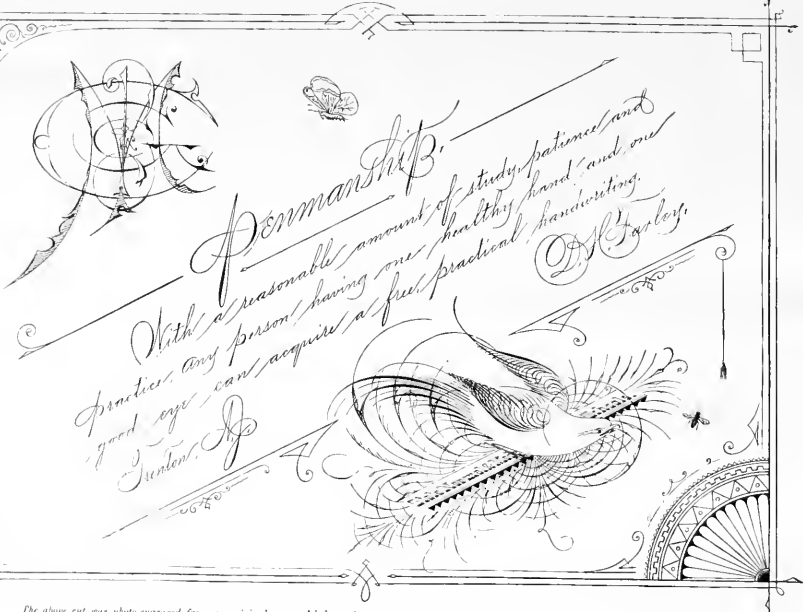 Penmanship.
With a reasonable amount of study, patience and
practice, any person, having one healthy hand and one
good eye, can acquire a free, practical handwriting.
D. H. Farley.
Trenton, N.J.
The above cut was photo-engraved